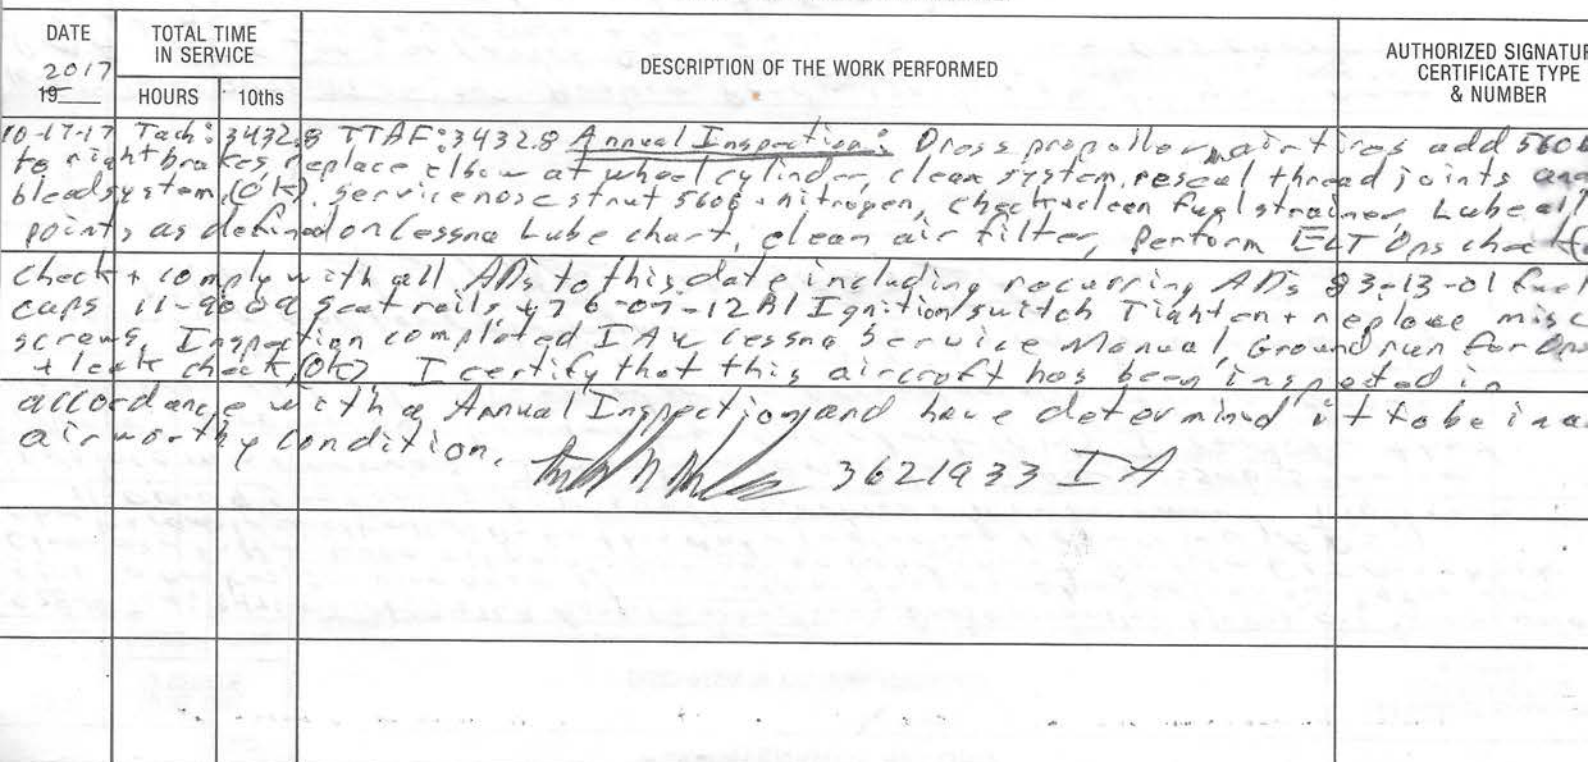 DATE
2017
19
TOTAL TIME
IN SERVICE
HOURS
10ths
DESCRIPTION OF THE WORK PERFORMED
AUTHORIZED SIGNATUR
CERTIFICATE TYPE
& NUMBER
10-17-17 Tach: 3432.8 TTAF: 3432.8 Annual Inspection: Dress propeller, air tires add 5606
to right brakes, replace elbow at wheel cylinder, clean system, reseal thread joints and
bleed system, (OK), service nose strut 5606 + nitrogen, check + clean fuel strainer, Lube all
points as defined on Cessna Lube chart, clean air filter, Perform ELT Ops check
Check + comply with all ADs to this date including recurring ADs 83-13-01 fuel
caps 11- seat rails + 76-07-12 Ignition switch Tighten + replace misc
screws, Inspection completed IAW Cessna Service Manual, Ground run for Ops
+ leak check, (OK) I certify that this aircraft has been inspected in
accordance with a Annual Inspection and have determined it to be in a
airworthy condition. 3621933 IA